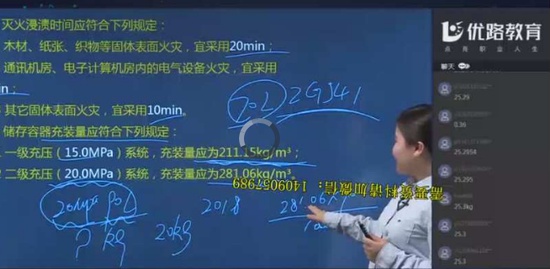 灭火浸渍时间应符合下列规定：
木材、纸张、织物等固体表面火灾，宜采用20min；
通讯机房、电子计算机房内的电气设备火灾，宜采用
min。
其它固体表面火灾，宜采用10min。
储存容器充装量应符合下列规定：
1 一级充压（15.0MPa）系统，充装量应为211.15kg/m³；
2 二级充压（20.0MPa）系统，充装量应为281.06kg/m³。
70L
IG541
20MPa 80L
? kg
20kg
20.8
281.06×
优路教育
点亮职业人生
聊天
25.29
0.36
25.2954
25.295
25.3
25.3kg
25.3
需要资料请加微信：1409057989